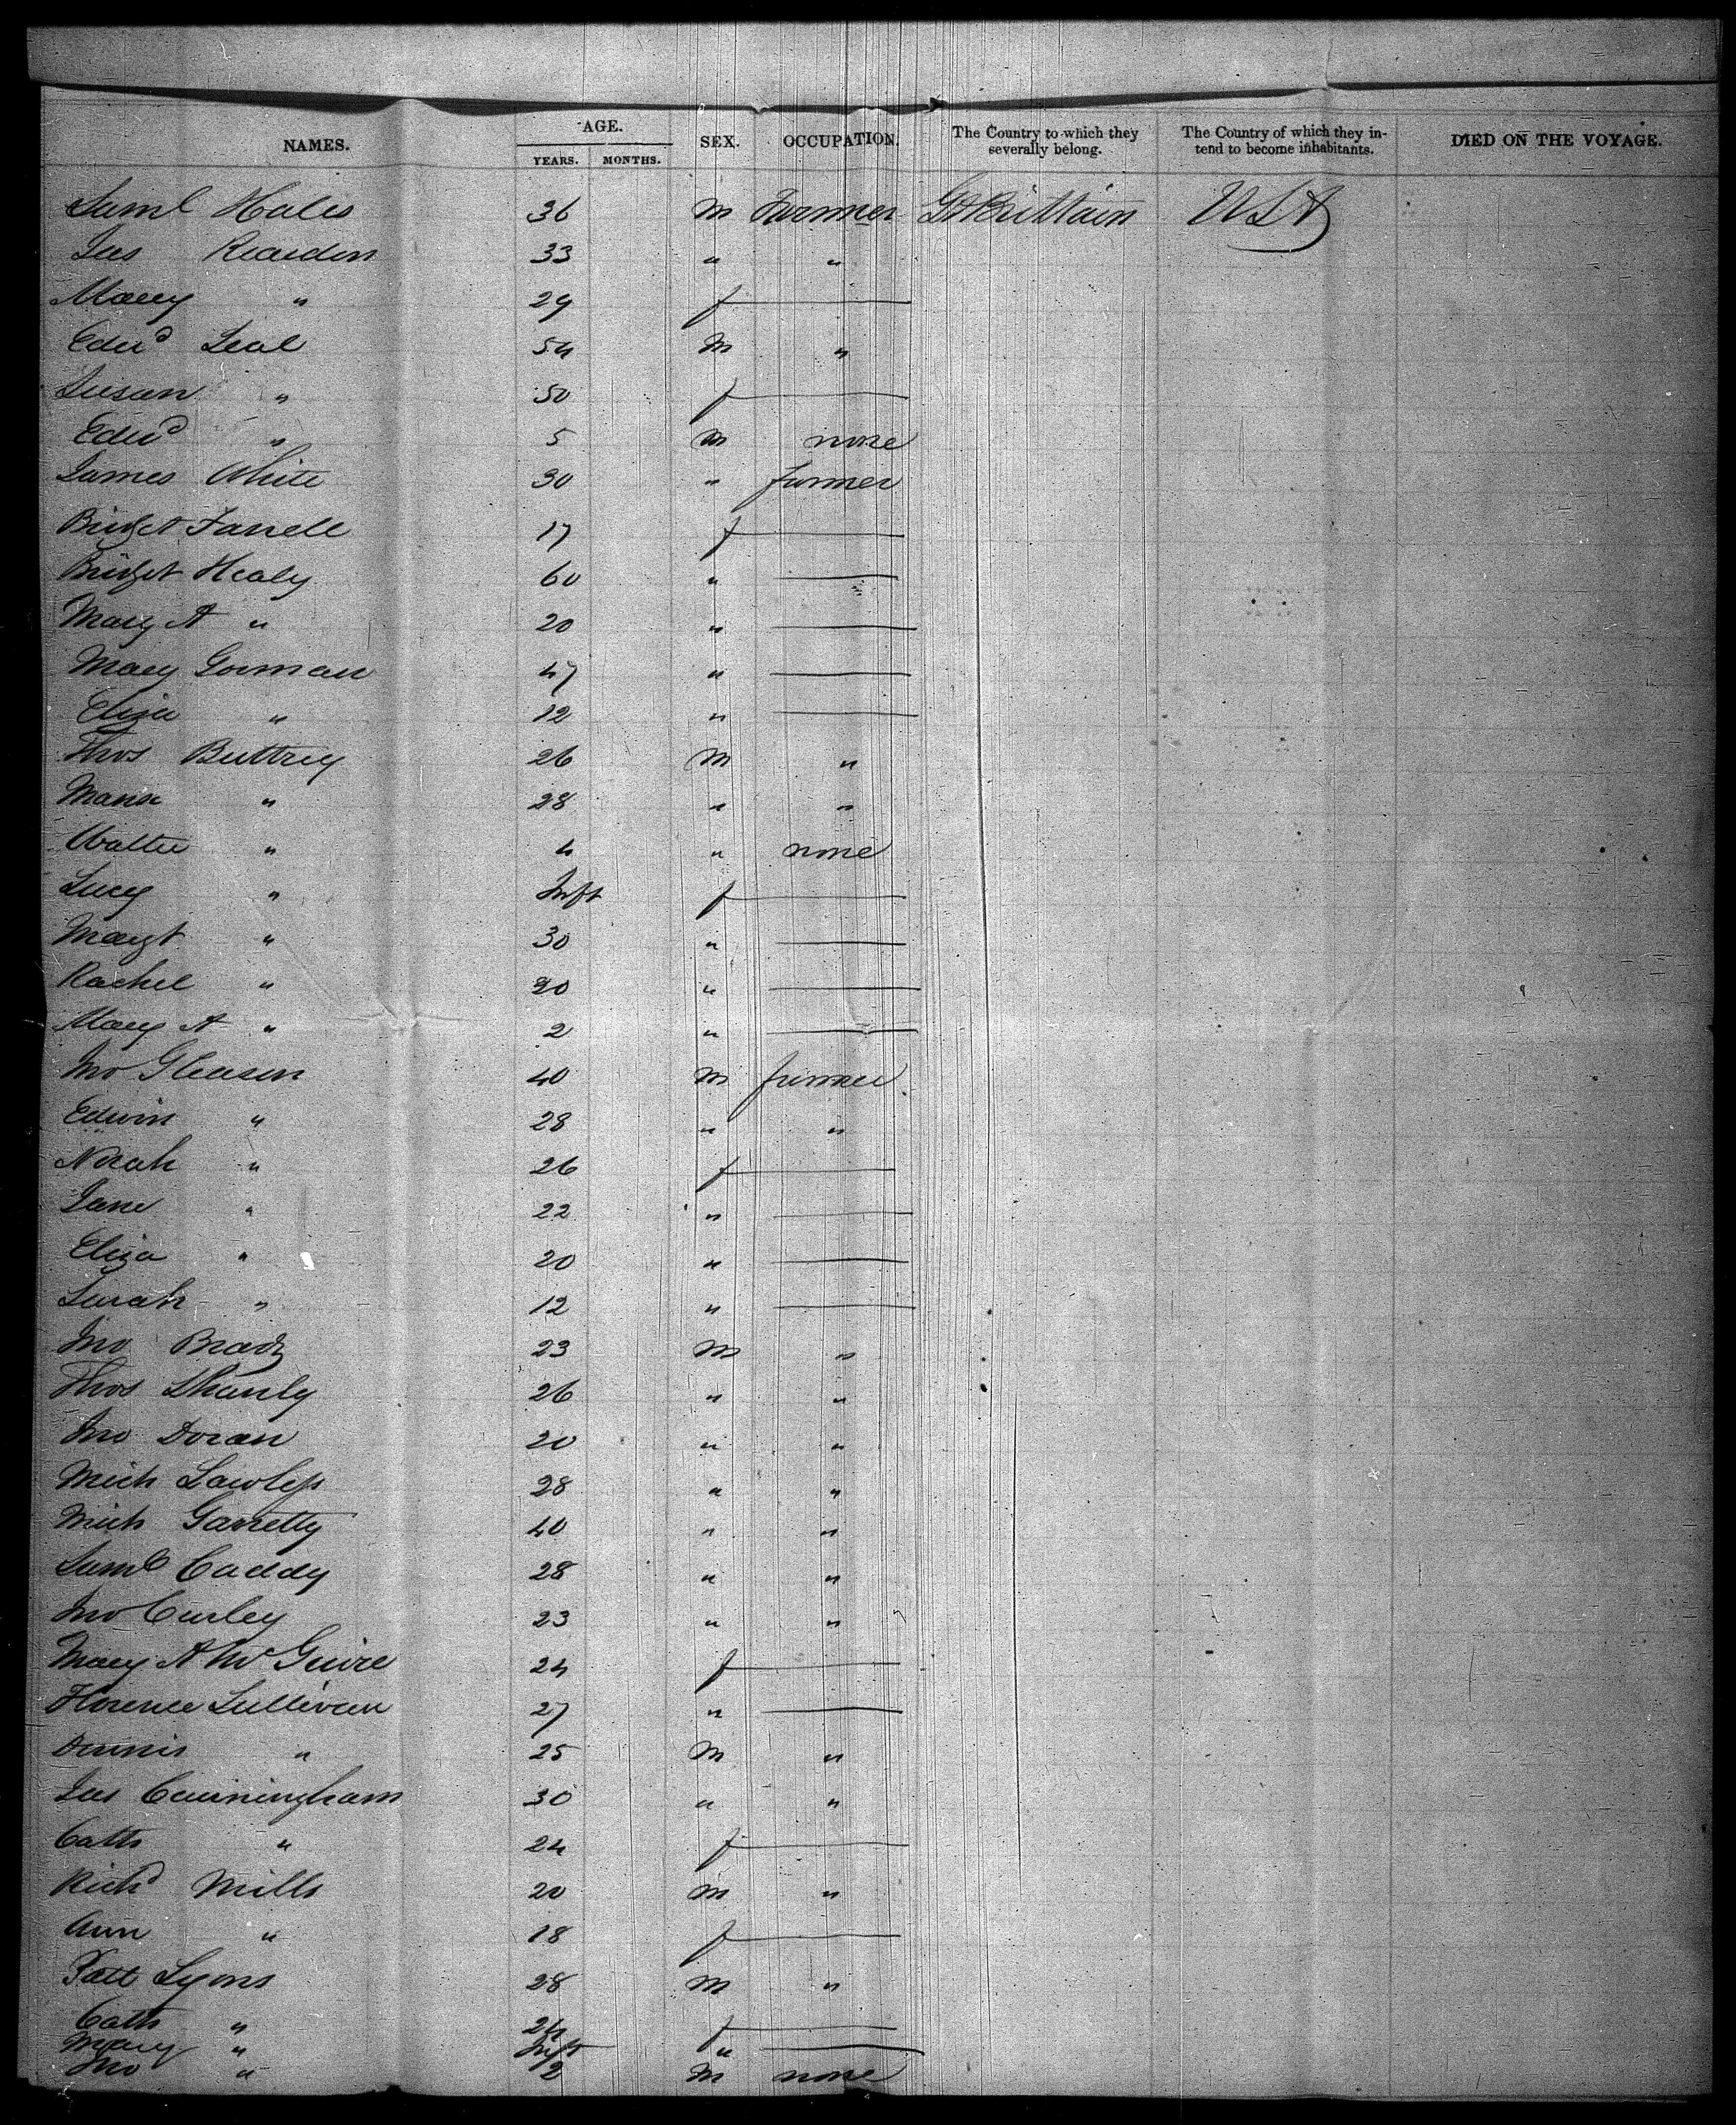 NAMES. AGE. YEARS. MONTHS. SEX. OCCUPATION. The Country to which they severally belong. The Country of which they intend to become inhabitants. DIED ON THE VOYAGE.
Saml Hales 36 m Farmer Gt Brittain USA
Jas Reardon 33 " "
Mary " 29 f
Edwd Leal 54 m "
Susan " 50 f
Edwd " 5 m none
James White 30 " farmer
Bridget Farrell 17 f
Bridget Healy 60 "
Mary A " 20 "
Mary Gorman 47 "
Eliza " 12 "
Thos Buttrey 26 m "
" 28 " "
Walter " 4 " none
Lucy " Inft f
Margt " 30 "
Rachel " 20 "
Mary A " 2 "
Jno Gleason 40 m farmer
Edwin " 28 " "
Norah " 26 f
Jane " 22 "
Eliza " 20 "
Sarah " 12 "
Jno Brady 23 m "
Thos Shanly 26 " "
Jno Doran 20 " "
Mich Lawless 28 " "
Mich Garretty 40 " "
Saml Caddy 28 " "
Jno Curley 23 " "
Mary A McGuire 24 f
Florence Sullivan 27 "
Dennis " 25 m "
Jas Cunningham 30 " "
Cath " 24 f
Richd Mills 20 m "
Ann " 18 f
Patt Lyons 28 m "
Cath " 24 f
Mary " Inft "
Jno " 2 m none